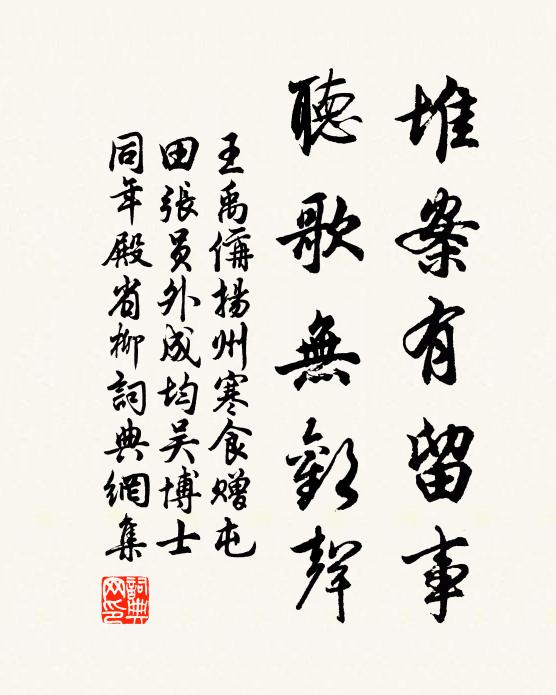 堆案有留事
聽歌無歡聲
王禹偁揚州寒食贈屯
田張員外成均吳博士
同年殿省柳詞典網集
詞典网印